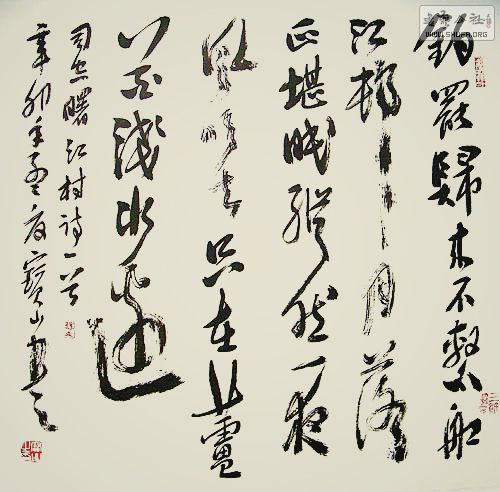 釣罷歸来不繫船
江村月落
正堪眠縱然一夜
風吹去只在蘆
花淺水邊
司空曙江村诗一首
辛卯年孟夏寶山书之
WWW.SHUFA.ORG